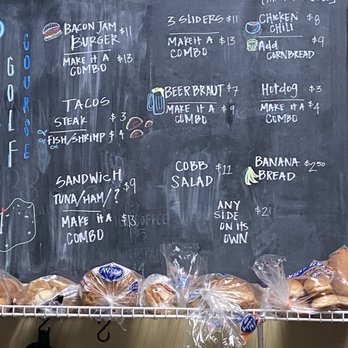 GOLF
COURSE
BACON JAM $11
BURGER
MAKE IT A $13
COMBO
TACOS
STEAK $3
FISH/SHRIMP $4
SANDWICH $9
TUNA/HAM/?
MAKE IT A $13
COMBO
3 SLIDERS $11
MAKE IT A $13
COMBO
BEER BRAUT $7
MAKE IT A $9
COMBO
COBB $11
SALAD
ANY $2
SIDE
ON ITS
OWN
CHICKEN $8
CHILI
Add
CORNBREAD
Hotdog $3
MAKE IT A $4
COMBO
BANANA $2.50
BREAD
COFFEE